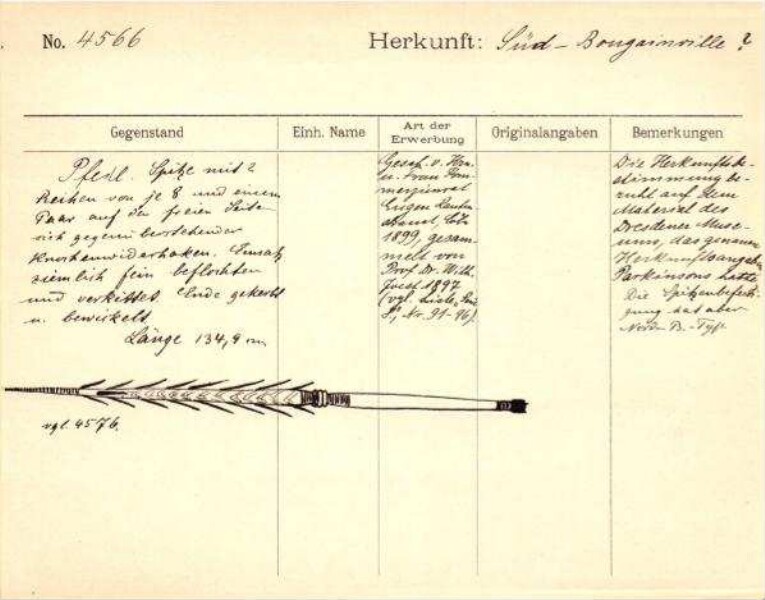 No. 4566
Herkunft: Süd - Bougainville ?
Gegenstand
Einh. Name
Art der Erwerbung
Originalangaben
Bemerkungen
Pfeil. Spitze mit 2
Reihen von je 8 und einem
Paar auf den freien Seiten
sich gegenüberstehender
Knochenwiderhaken. Einsatz
ziemlich fein beflochten
und verkittet. Ende gekerbt
u. bewickelt
Länge 134,9 cm
Gesch. v. Hrn.
u. Frau Kom-
merzienrat
Eugen Rauten-
strauch, Cöln
1899, gesam-
melt von
Prof. Dr. Wilh.
Joest 1897
(vgl. Liste
Nr. 91-96).
Die Herkunftsbe-
stimmung be-
ruht auf dem
Material des
Dresdener Muse-
ums, das genaue
Herkunftsangaben
Parkinsons hatte
Die Spitzenbefesti-
gung hat aber
Nord-B.-Typ
vgl. 4576.